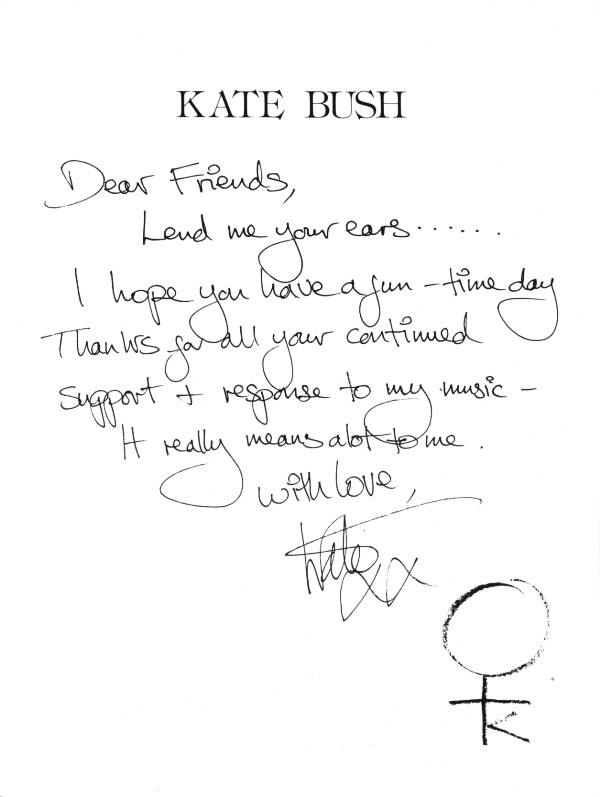 KATE BUSH
Dear Friends,
Lend me your ears......
I hope you have a fun-time day
Thanks for all your continued
support + response to my music -
It really means alot to me.
With love,
Kate xx
K